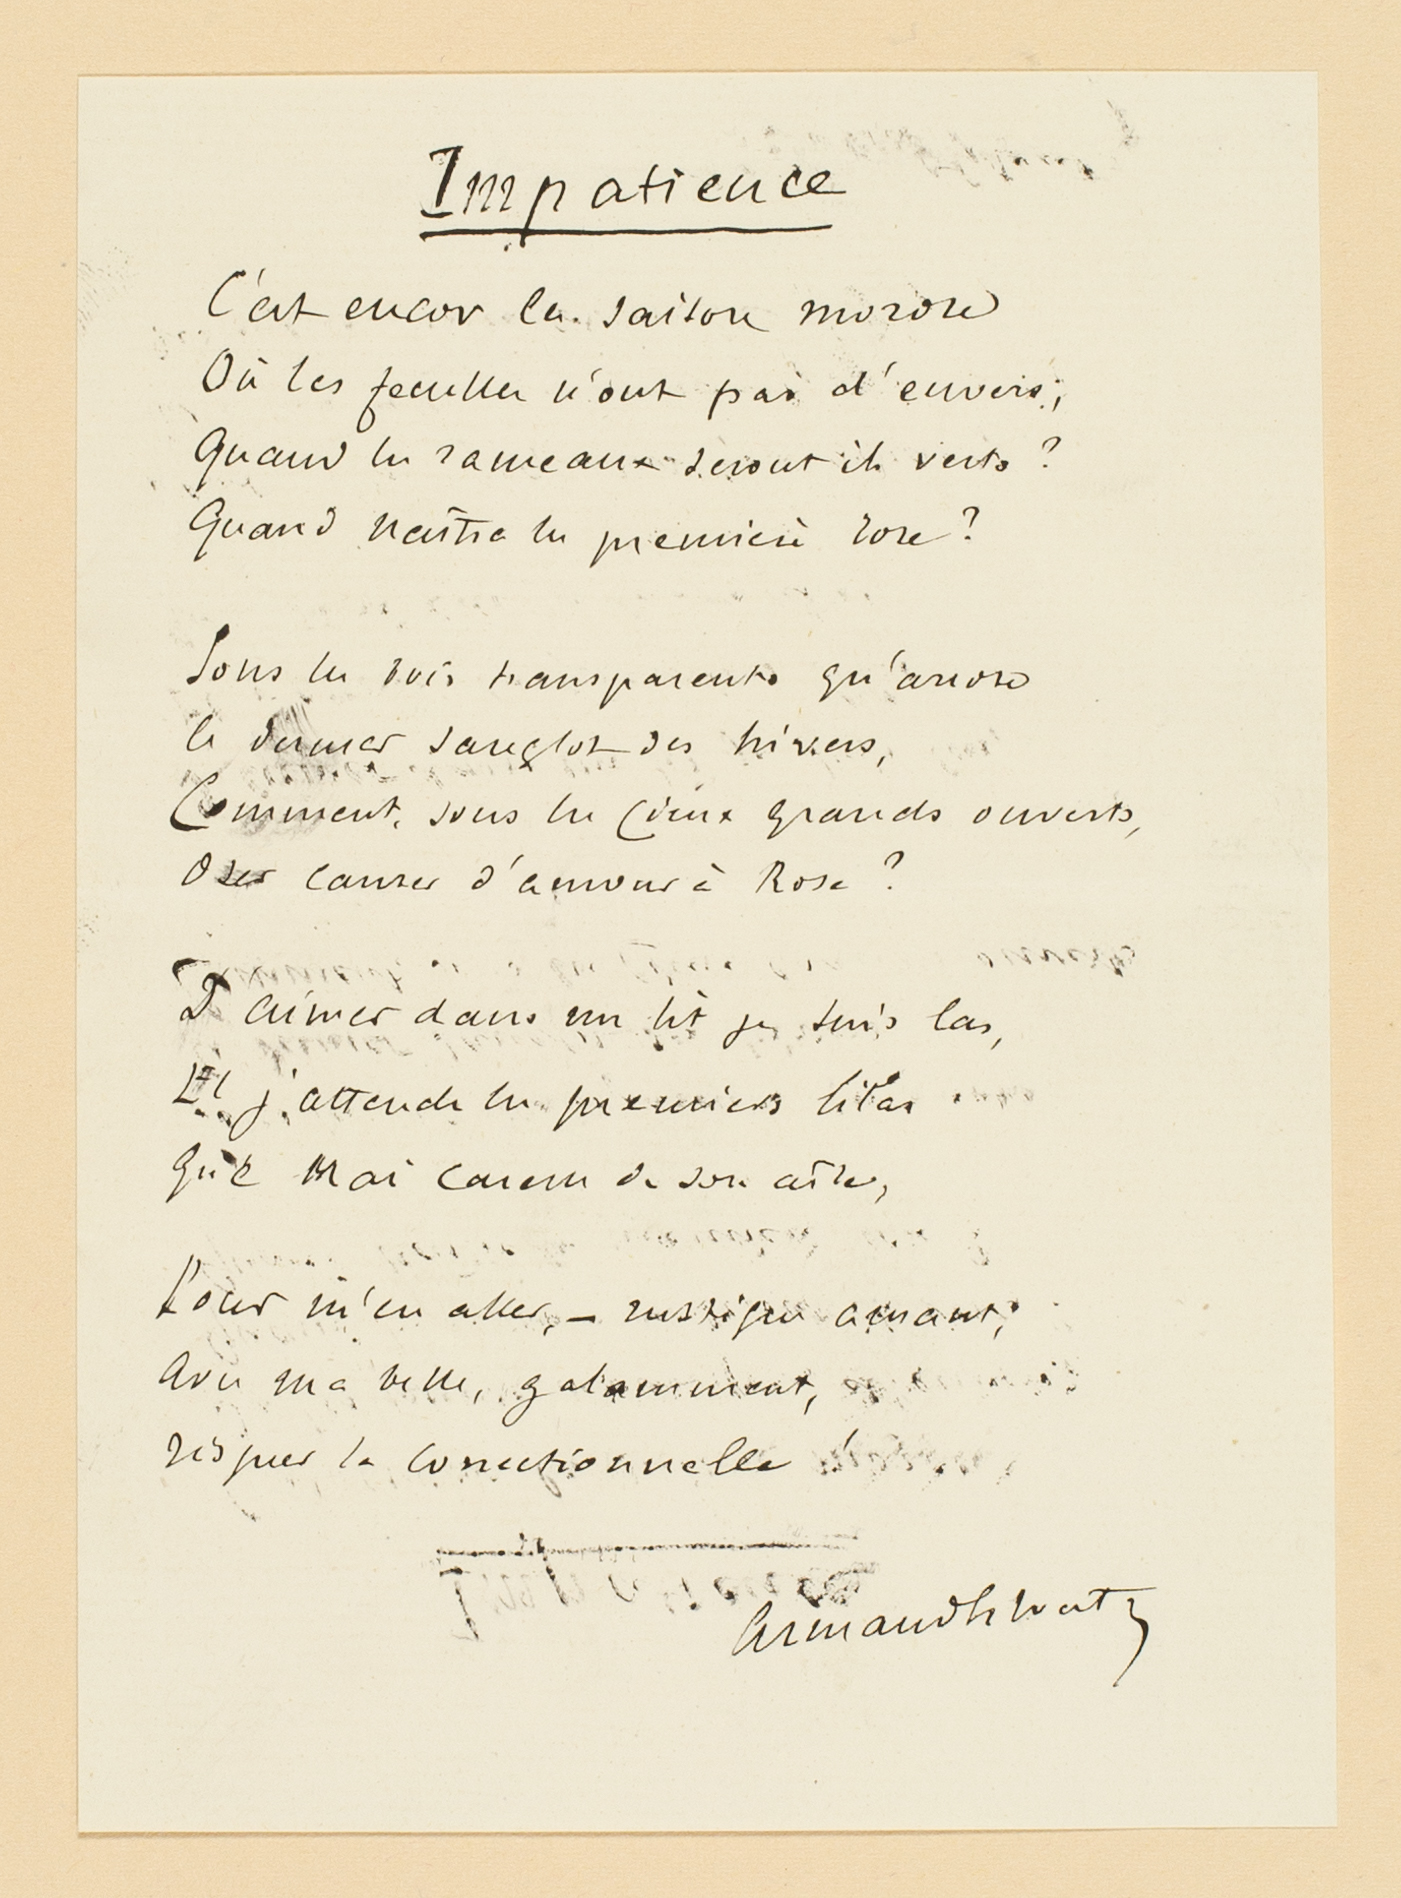 Impatience
C'est encor la saison morose
Où les feuilles n'ont pas d'envers;
Quand les rameaux seront ils verts ?
Quand naîtra la première rose ?
Sous les bois transparents qu'arrose
le dernier sanglot des hivers,
Comment, sous les cieux grands ouverts,
Oser causer d'amour à Rose ?
D'aimer dans un lit je suis las,
Et j'attends les premiers lilas
Que Mai caresse de son aîle,
Pour m'en aller, — rustique amant,
Avec ma belle, galamment,
risquer la correctionnelle !
Armand